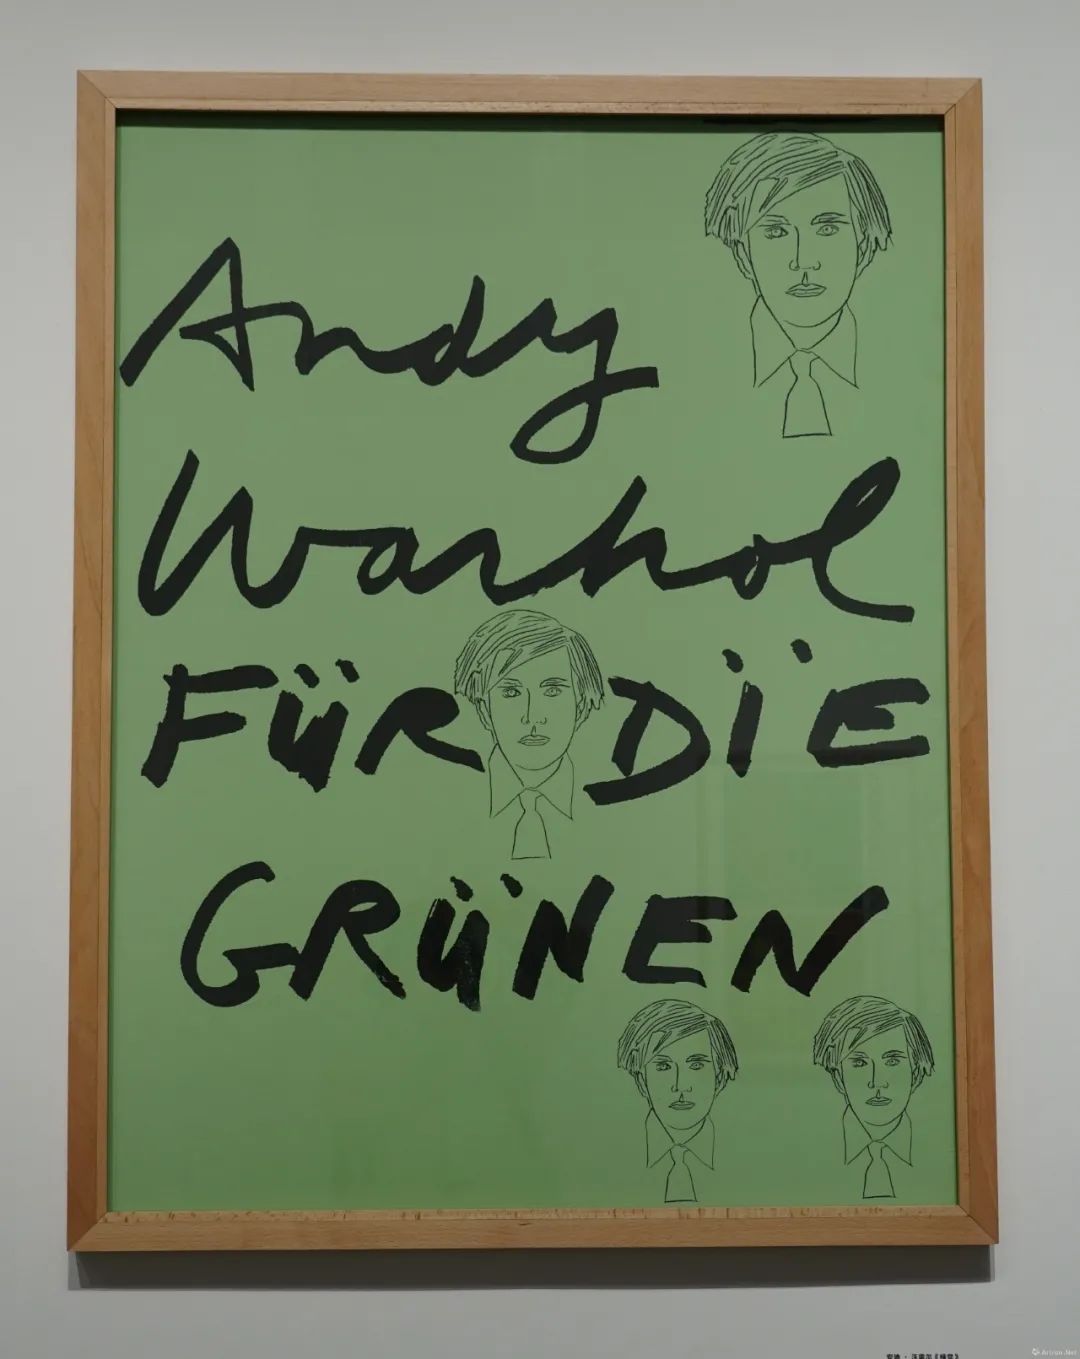 Andy
Warhol
FÜR DİE
GRÜNEN
安迪·沃霍尔《绿党》
Artron.Net